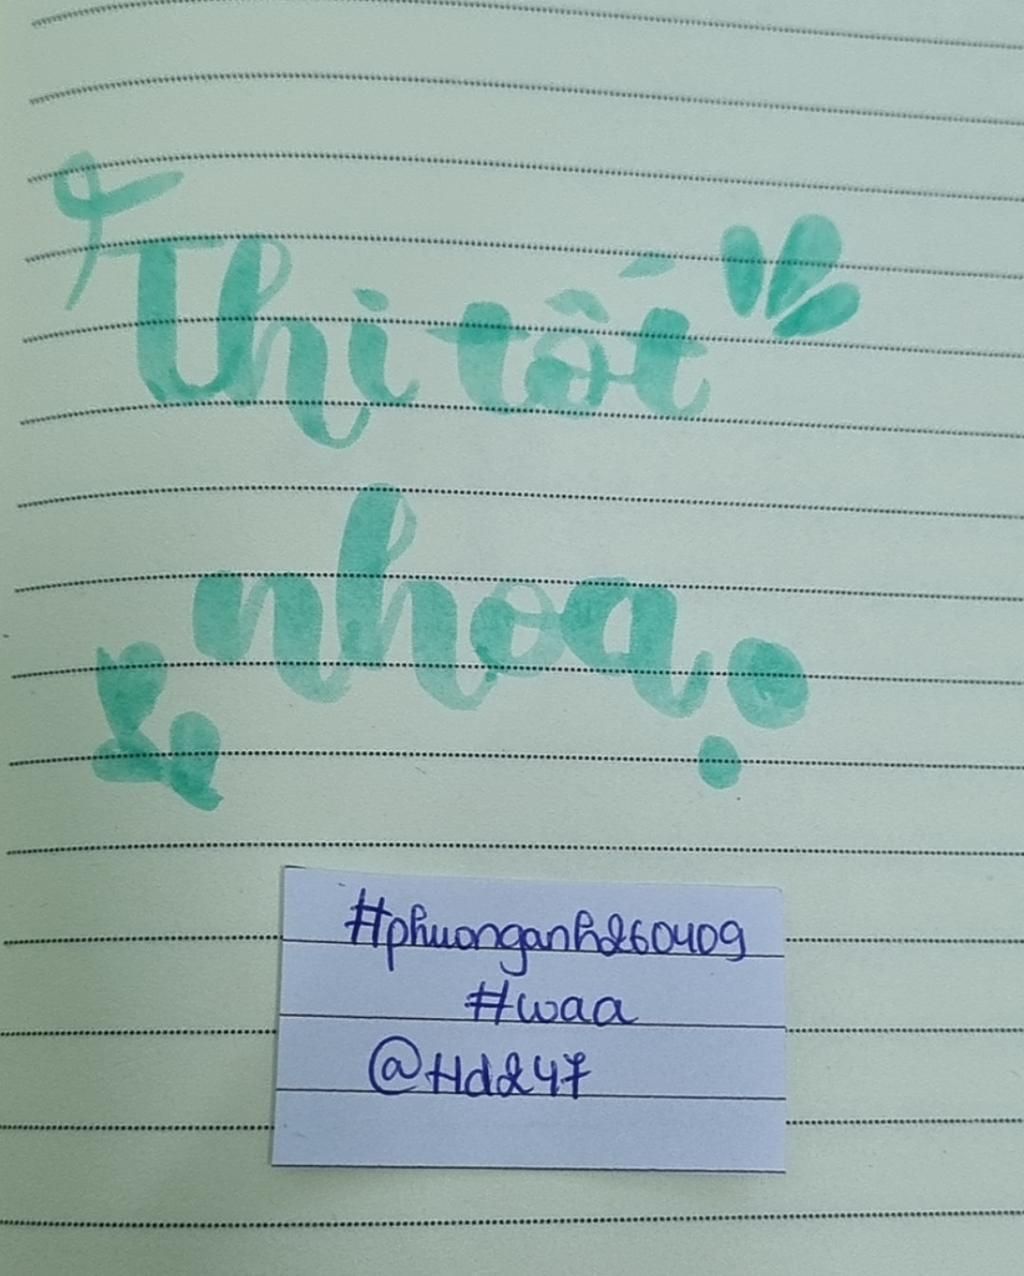 Thi tốt
nhoạ
#phuonganh260409
#waa
@Hd247